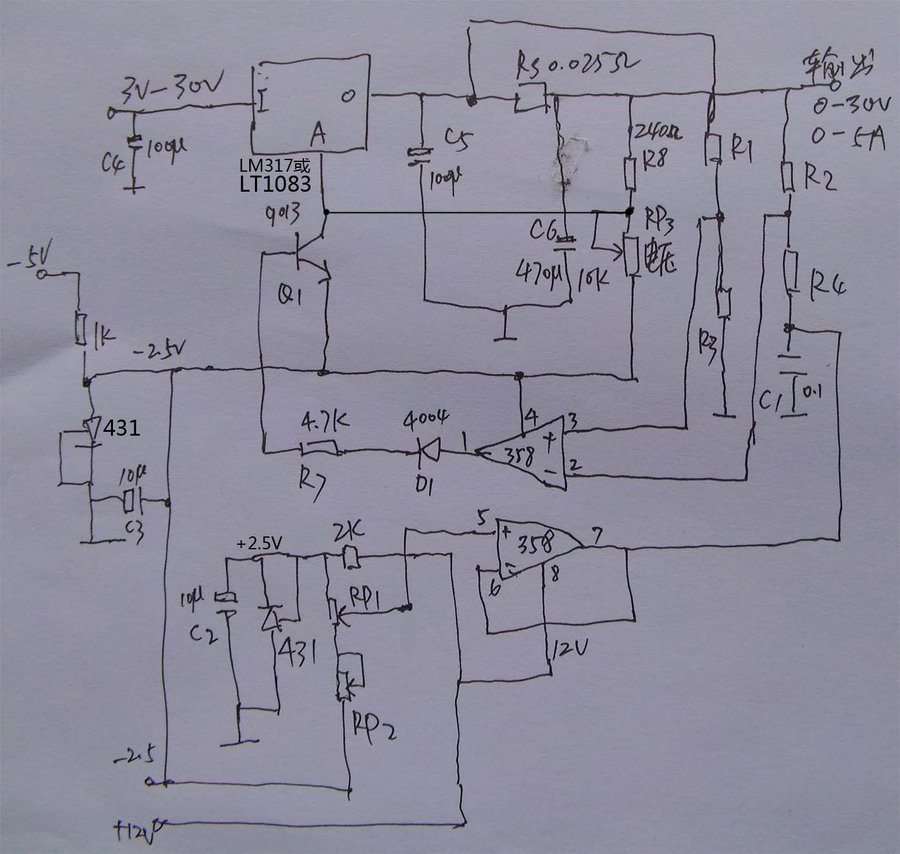 3V-30V
I
O
A
LM317或
LT1083
C4
100μ
C5
100μ
RS 0.025Ω
输出
0-30V
0-5A
240Ω
R8
R1
R2
9013
Q1
C6
470μ
10K
RP3
电压
R3
R4
C1
0.1
-5V
1K
-2.5V
431
10μ
C3
4.7K
R7
4004
D1
1
4
3
2
+
-
358
+2.5V
2K
10μ
C2
431
RP1
RP2
5
6
7
8
+
-
358
12V
-2.5
+12V